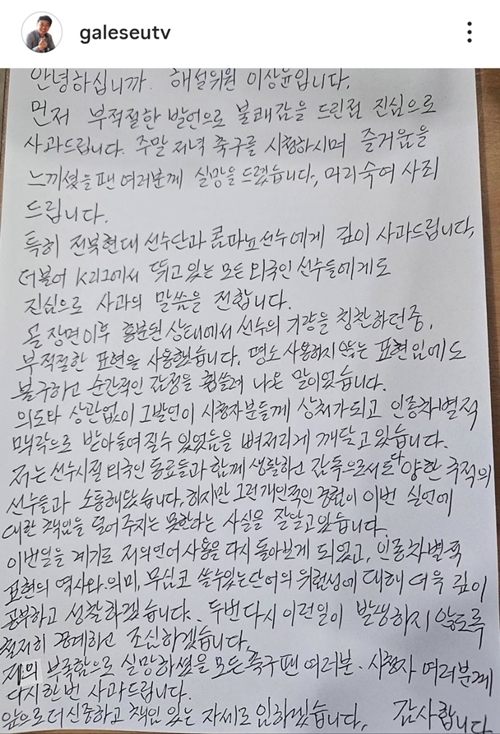 galeseutv
안녕하십니까. 해설위원 이상윤입니다.
먼저 부적절한 발언으로 불쾌감을 드린점 진심으로
사과드립니다. 주말 저녁 축구를 시청하시며 즐거움을
느끼셨을팬 여러분께 실망을 드렸습니다, 머리숙여 사죄
드립니다.
특히 전북현대 선수단과 콤파뇨선수에게 깊이 사과드립니다,
더불어 K리그에서 뛰고있는 모든 외국인 선수들에게도
진심으로 사과의 말씀을 전합니다.
골 장면이후 흥분된 상태에서 선수의 기량을 칭찬하던중,
부적절한 표현을 사용했습니다. 평소 사용하지 않는 표현임에도
불구하고 순간적인 감정을 휩쓸려 나온 말이었습니다.
의도와 상관없이 그발언이 시청자분들께 상처가되고 인종차별적
맥락으로 받아들여질수 있었음을 뼈저리게 깨닫고있습니다.
저는 선수시절 외국인 동료들과 함께 생활하고 감독으로서도 다양한 국적의
선수들과 소통해왔습니다, 하지만 그런개인적인 경험이 이번 실언에
대한 책임을 덜어주지는 못한다는 사실을 잘알고있습니다.
이번일을 계기로 저의언어사용을 다시 돌아보게 되었고, 인종차별적
표현의 역사와 의미, 무심코 쓸수있는단어의 위험성에 대해 더욱 깊이
공부하고 성찰하겠습니다. 두번다시 이런일이 발생하지 않도록
철저히 경계하고 조심하겠습니다.
저의 부족함으로 실망하셨을 모든축구팬 여러분· 시청자 여러분께
다시한번 사과드립니다.
앞으로더신중하고 책임 있는 자세로 임하겠습니다, 감사합니다